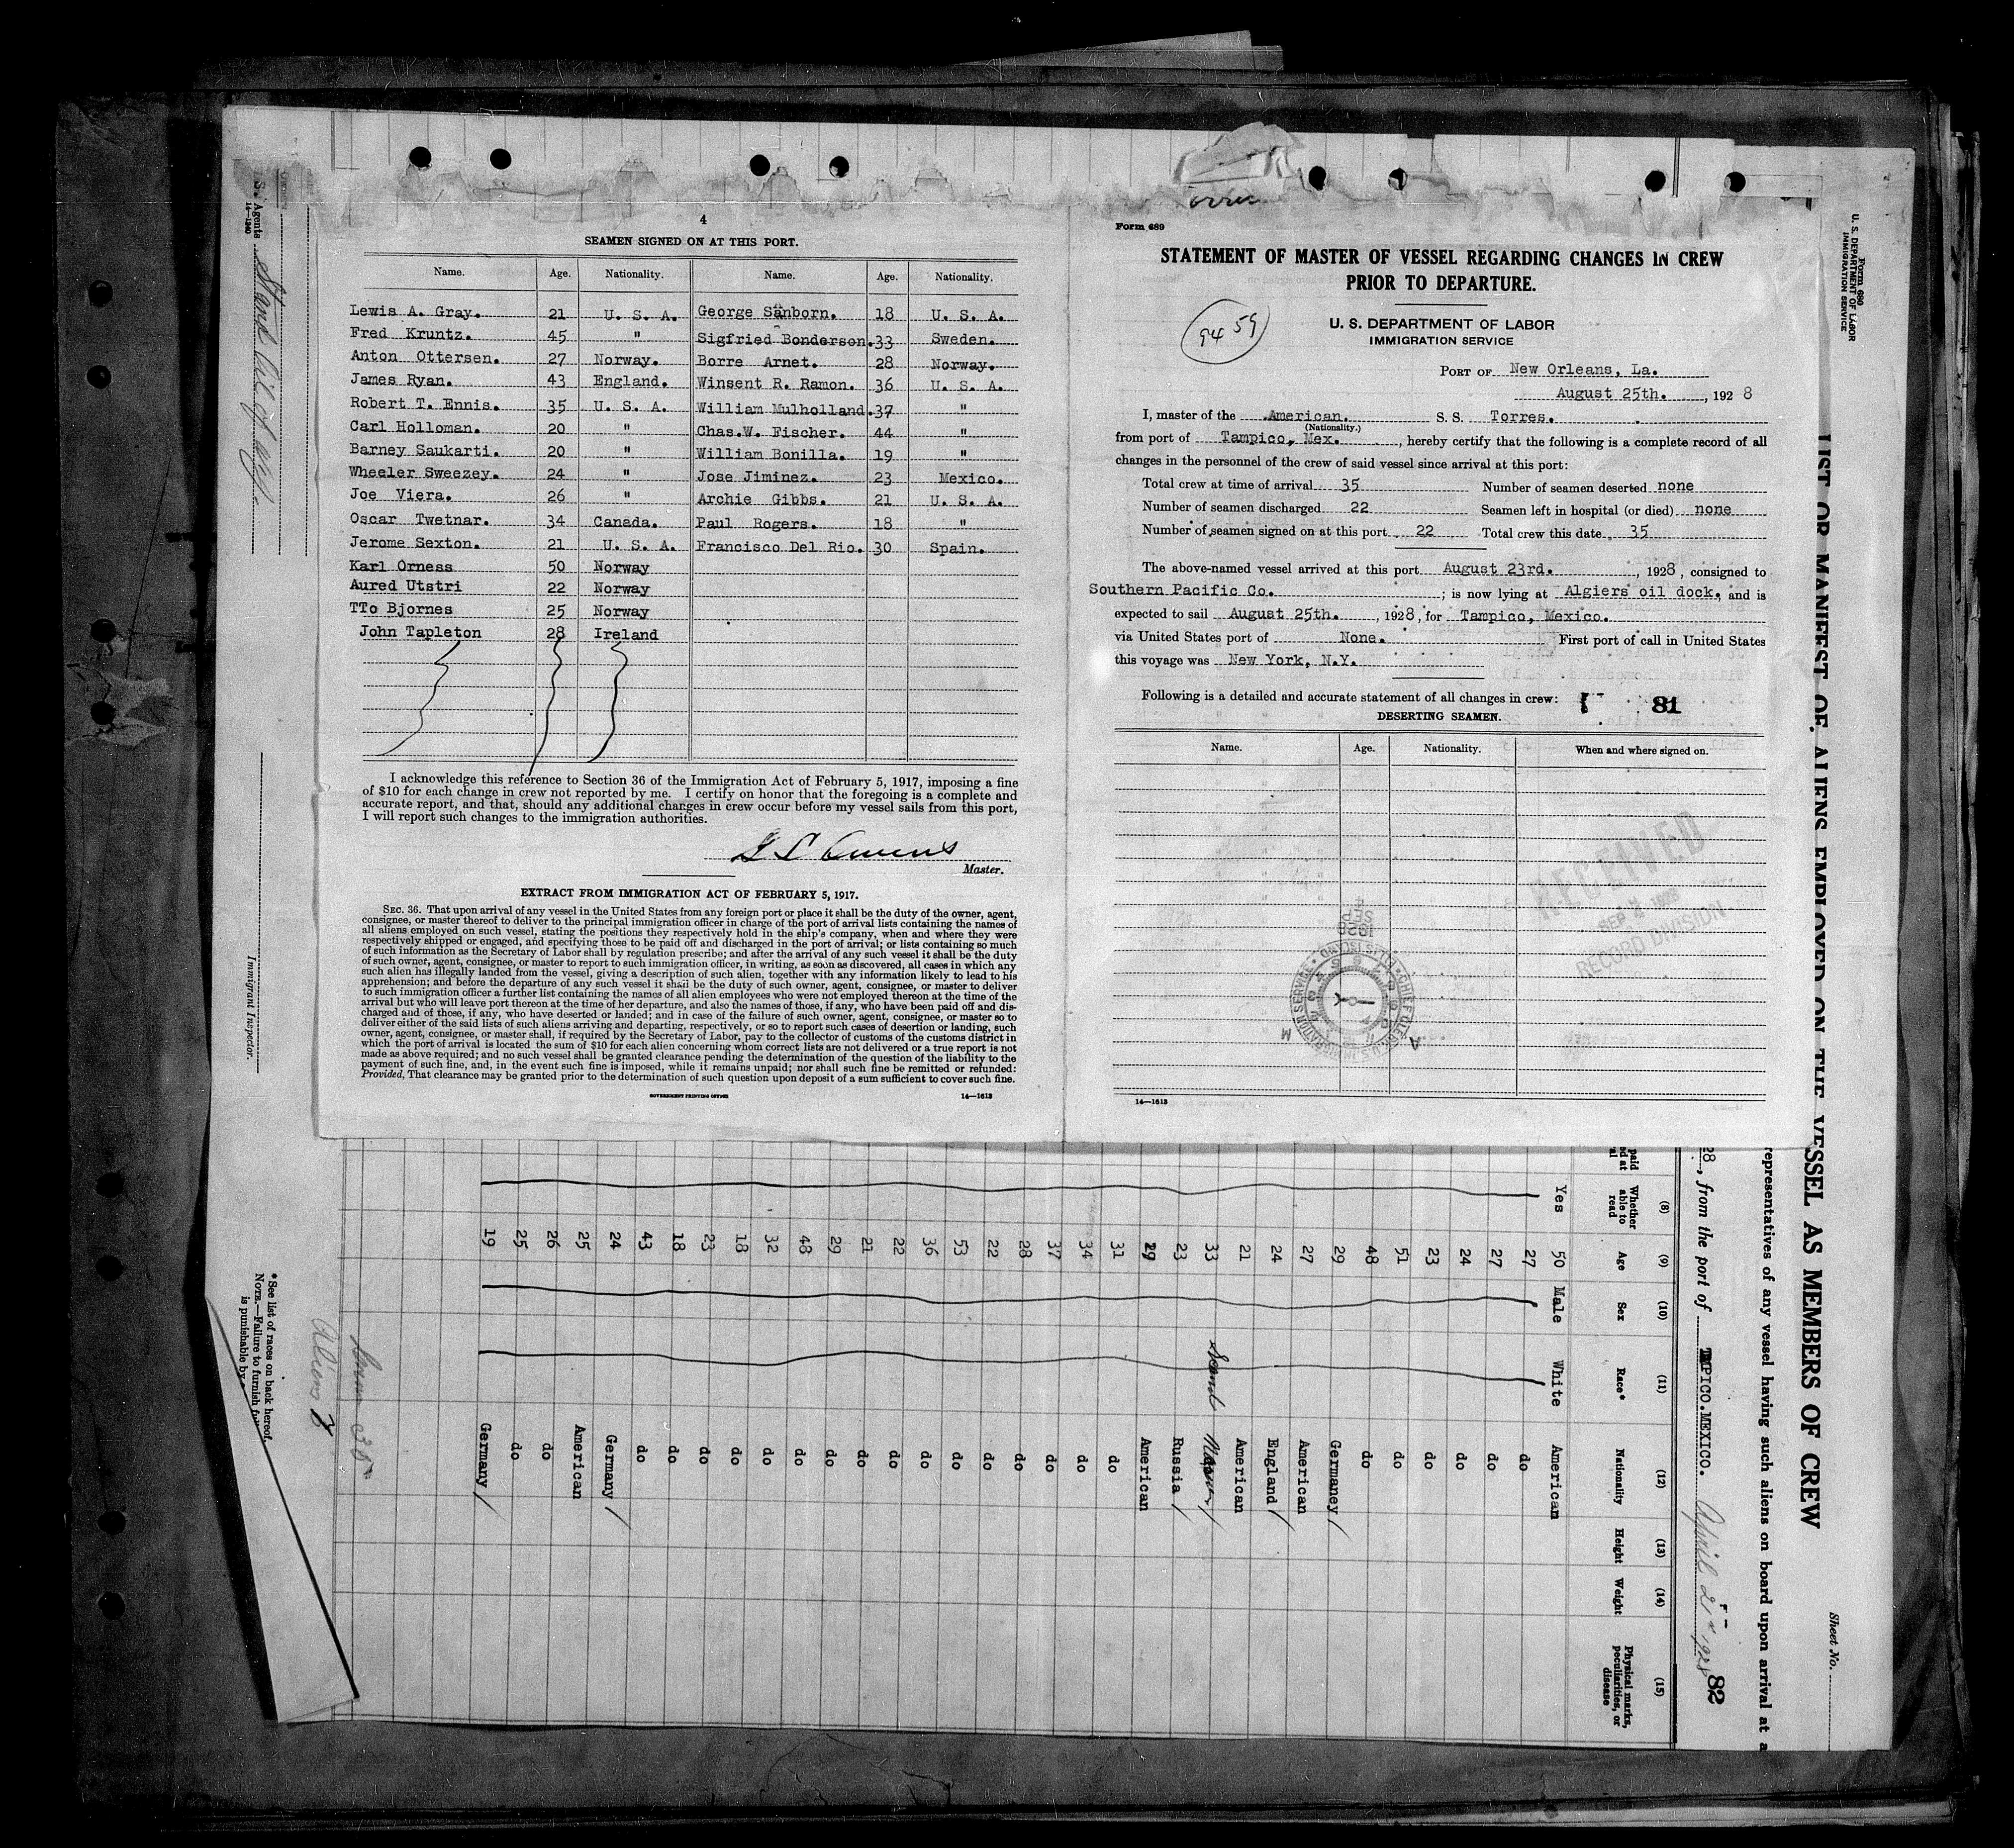 4
SEAMEN SIGNED ON AT THIS PORT.
Name. Age. Nationality. Name. Age. Nationality.
Lewis A. Gray. 21 U. S. A. George Sanborn. 18 U. S. A.
Fred Kruntz. 45 " Sigfried Bonderson. 33 Sweden.
Anton Ottersen. 27 Norway. Borre Arnet. 28 Norway.
James Ryan. 43 England. Winsent R. Ramon. 36 U. S. A.
Robert T. Ennis. 35 U. S. A. William Mulholland. 37 "
Carl Holloman. 20 " Chas.W. Fischer. 44 "
Barney Saukarti. 20 " William Bonilla. 19 "
Wheeler Sweezey. 24 " Jose Jiminez. 23 Mexico.
Joe Viera. 26 " Archie Gibbs. 21 U. S. A.
Oscar Twetnar. 34 Canada. Paul Rogers. 18 "
Jerome Sexton. 21 U. S. A. Francisco Del Rio. 30 Spain.
Karl Orness 50 Norway
Aured Utstri 22 Norway
TTo Bjornes 25 Norway
John Tapleton 28 Ireland
I acknowledge this reference to Section 36 of the Immigration Act of February 5, 1917, imposing a fine
of $10 for each change in crew not reported by me. I certify on honor that the foregoing is a complete and
accurate report, and that, should any additional changes in crew occur before my vessel sails from this port,
I will report such changes to the immigration authorities.
Owens
Master.
EXTRACT FROM IMMIGRATION ACT OF FEBRUARY 5, 1917.
SEC. 36. That upon arrival of any vessel in the United States from any foreign port or place it shall be the duty of the owner, agent,
consignee, or master thereof to deliver to the principal immigration officer in charge of the port of arrival lists containing the names of
all aliens employed on such vessel, stating the positions they respectively hold in the ship's company, when and where they were
respectively shipped or engaged, and specifying those to be paid off and discharged in the port of arrival; or lists containing so much
of such information as the Secretary of Labor shall by regulation prescribe; and after the arrival of any such vessel it shall be the duty
of such owner, agent, consignee, or master to report to such immigration officer, in writing, as soon as discovered, all cases in which any
such alien has illegally landed from the vessel, giving a description of such alien, together with any information likely to lead to his
apprehension; and before the departure of any such vessel it shall be the duty of such owner, agent, consignee, or master to deliver
to such immigration officer a further list containing the names of all alien employees who were not employed thereon at the time of the
arrival but who will leave port thereon at the time of her departure, and also the names of those, if any, who have been paid off and dis-
charged and of those, if any, who have deserted or landed; and in case of the failure of such owner, agent, consignee, or master so to
deliver either of the said lists of such aliens arriving and departing, respectively, or so to report such cases of desertion or landing, such
owner, agent, consignee, or master shall, if required by the Secretary of Labor, pay to the collector of customs of the customs district in
which the port of arrival is located the sum of $10 for each alien concerning whom correct lists are not delivered or a true report is not
made as above required; and no such vessel shall be granted clearance pending the determination of the question of the liability to the
payment of such fine, and, in the event such fine is imposed, while it remains unpaid; nor shall such fine be remitted or refunded:
Provided, That clearance may be granted prior to the determination of such question upon deposit of a sum sufficient to cover such fine.
GOVERNMENT PRINTING OFFICE 14—1613
Form 689
STATEMENT OF MASTER OF VESSEL REGARDING CHANGES IN CREW
PRIOR TO DEPARTURE.
94 59
U. S. DEPARTMENT OF LABOR
IMMIGRATION SERVICE
PORT OF New Orleans, La.
August 25th. , 1928
I, master of the American. S. S. Torres.
(Nationality.)
from port of Tampico, Mex. , hereby certify that the following is a complete record of all
changes in the personnel of the crew of said vessel since arrival at this port:
Total crew at time of arrival 35 Number of seamen deserted none
Number of seamen discharged 22 Seamen left in hospital (or died) none
Number of seamen signed on at this port 22 Total crew this date 35
The above-named vessel arrived at this port August 23rd. , 1928, consigned to
Southern Pacific Co. ; is now lying at Algiers oil dock, and is
expected to sail August 25th. , 1928, for Tampico, Mexico.
via United States port of None. First port of call in United States
this voyage was New York, N.Y.
Following is a detailed and accurate statement of all changes in crew: 81
DESERTING SEAMEN.
Name. Age. Nationality. When and where signed on.
RECEIVED
SEP 1928
RECORD DIVISION
SEP
1928
14—1613
Form 680
U. S. DEPARTMENT OF LABOR
IMMIGRATION SERVICE
Sheet No.
LIST OR MANIFEST OF ALIENS EMPLOYED ON THE VESSEL AS MEMBERS OF CREW
representatives of any vessel having such aliens on board upon arrival at a
28, from the port of TAMPICO.MEXICO. April 21st 1928 82
(8) (9) (10) (11) (12) (13) (14) (15)
Whether able to read Age Sex Race* Nationality Height Weight Physical marks, peculiarities, or disease
Yes 50 Male White American
27 do
27 do
24 do
23 do
51 do
48 do
29 Germaney
27 American
24 England
21 American
33 Scand
23 Russia
29 American
31 do
34 do
37 do
28 do
22 do
53 do
36 do
22 do
21 do
29 do
48 do
32 do
18 do
23 do
18 do
43 do
24 Germany
25 American
26 do
25 do
19 Germany
Aliens
* See list of races on back hereof.
NOTE.—Failure to furnish
is punishable by
Immigrant Inspector.
Agents Stand Oil of
14—1240